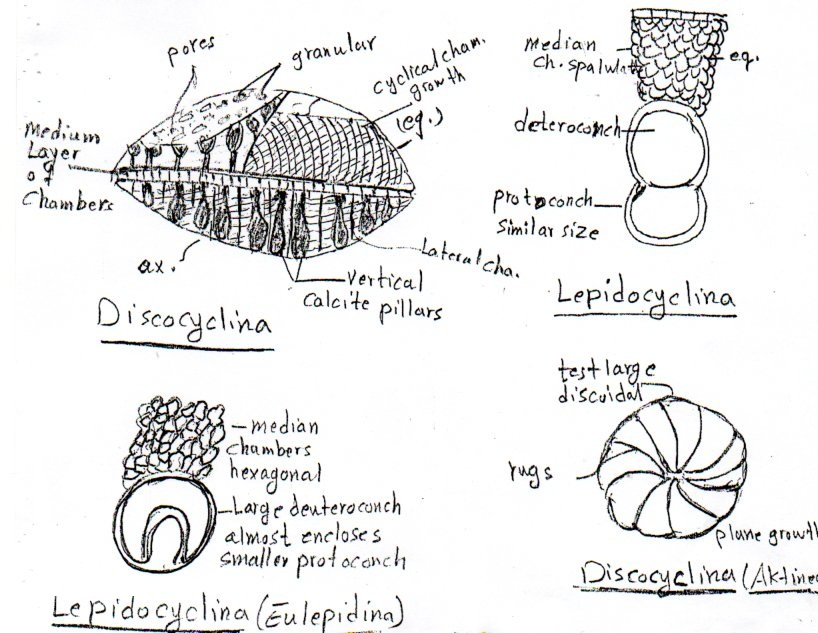 pores
granular
cyclical cham.
growth
(eq.)
Medium
Layer
of
Chambers
ax.
Lateral cha.
vertical
calcite pillars
Discocyclina
median
ch. spalulate
eq.
deteroconch
protoconch
similar size
Lepidocyclina
median
chambers
hexagonal
Large deuteroconch
almost encloses
smaller protoconch
Lepidocyclina (Eulepidina)
test large
discoidal
rugs
plane growth
Discocyclina (Aktine